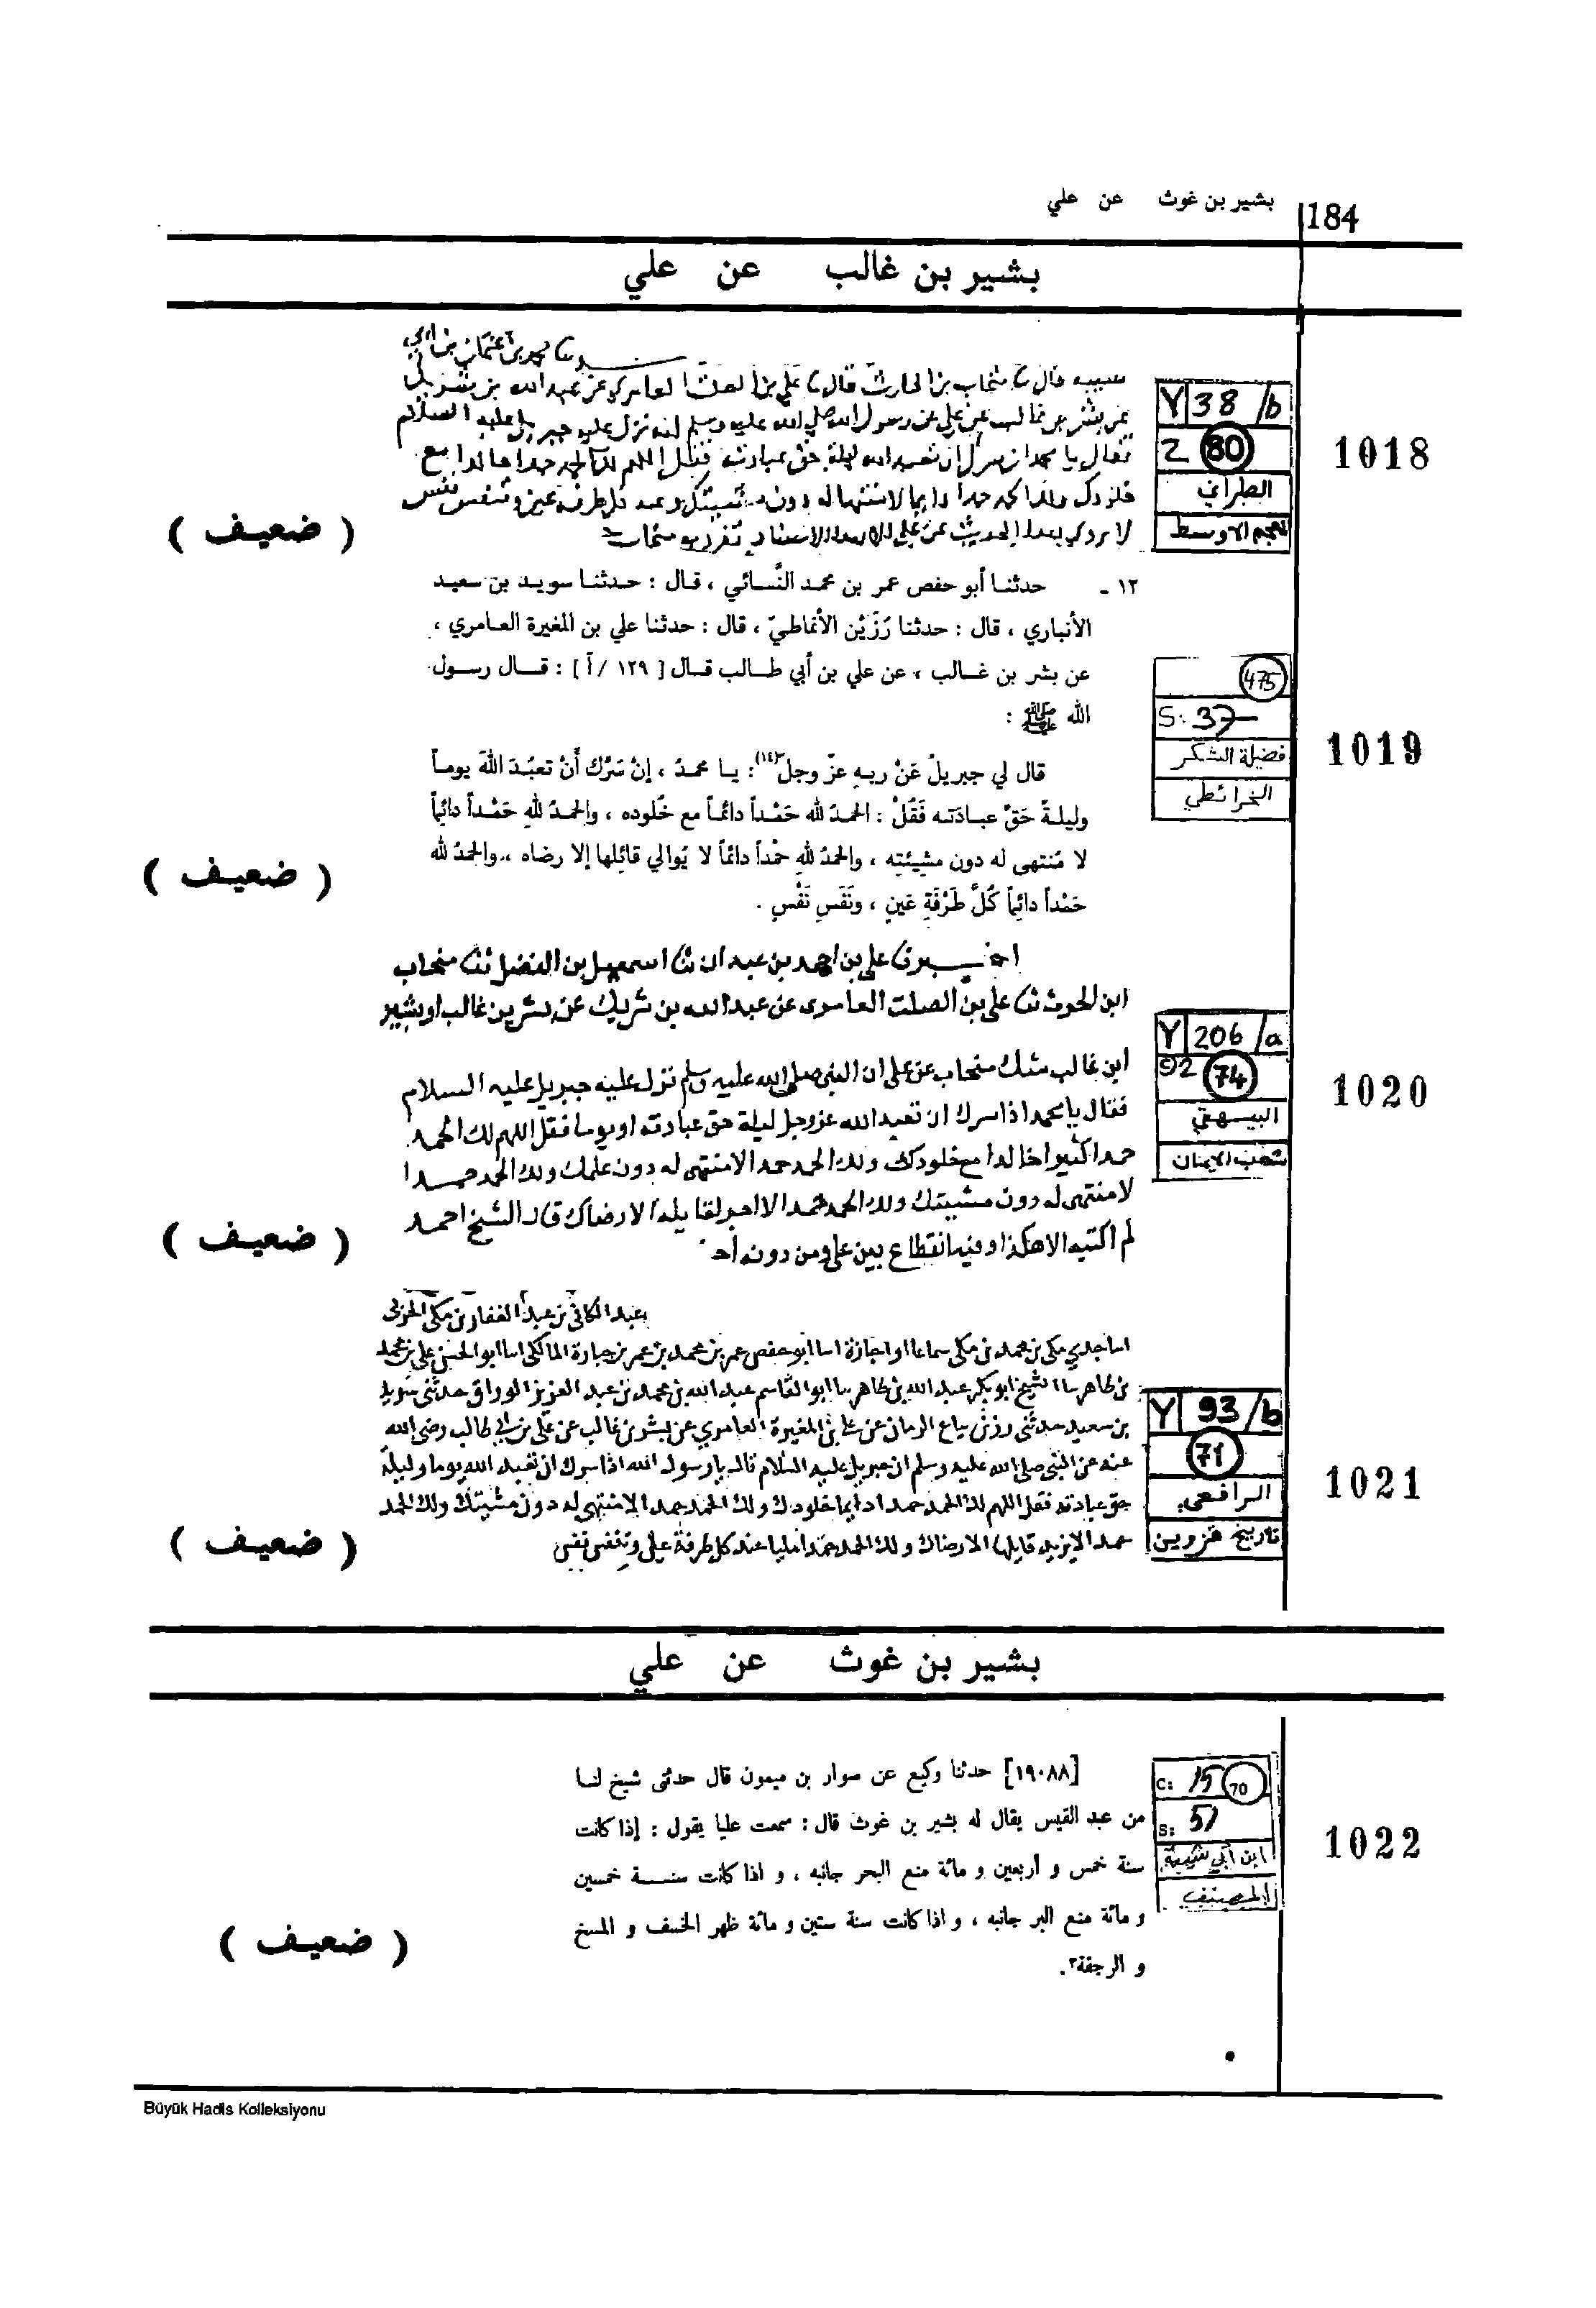 بشير بن غوث عن علي 184
بشير بن غالب عن علي
حدثنا محمد بن عثمان بن ابي
شيبه قال نا منجاب بن الحارث قال نا علي بن الصلت العامري عن عبد الله بن شريك
عن بشر بن غالب عن علي عن رسول الله صلي الله عليه وسلم انه نزل عليه جبريل عليه السلام
فقال يا محمد ان سرك ان تعبد الله ليلة حق عبادته فقل اللهم لك الحمد حمدا خالدا مع
خلودك ولك الحمد حمدا دايما لا منتهى له دون مشيتك وعند كل طرفة عين وتنفس نفس
لا يروى هذا الحديث عن علي الا بهذا الاسناد تفرد به منجاب
Y 38/b
Z 80
الطبراني
المعجم الاوسط
1018
( ضعيف )
١٢ - حدثنا أبو حفص عمر بن محمد النَّسائي ، قال : حدثنا سويد بن سعيد
الأنباري ، قال : حدثنا رُزَيْن الأنماطيّ ، قال : حدثنا علي بن المغيرة العامري ،
عن بشر بن غالب ، عن علي بن أبي طالب قال [ ١٢٩ /أ ] : قال رسول
الله ﷺ :
قال لي جبريلُ عَنْ ربهِ عزّ وجل(١٤٢): يا محمدُ ، إنْ سَرَّك أنْ تعبُدَ اللهَ يوماً
وليلةً حَقَّ عبادَتهِ فَقُلْ : الحمدُ لله حَمْداً دائماً مع خُلوده ، والحمدُ للهِ حَمْداً دائماً
لا مُنتهى له دون مشيئتِه ، والحمدُ للهِ حمْداً دائماً لا يُوالي قائلها إلا رضاه ، والحمدُ لله
حَمْداً دائماً كُلَّ طَرْفَةِ عَينٍ ، ونَفَسِ نَفْسٍ .
475
S: 37
فضيلة الشكر
الخرائطي
1019
( ضعيف )
اخبرنا علي بن احمد بن عبدان نا اسمعيل بن الفضل نا منجاب
ابن الحرث نا علي بن الصلت العامرى عن عبد الله بن شريك عن بشر بن غالب او بشير
ابن غالب شك منجاب عن على ان النبي صلى الله عليه وسلم نزل عليه جبريل عليه السلام
فقال يا محمد اذا سرك ان تعبد الله عز وجل ليلة حق عبادته او يوما فقل اللهم لك الحمد
حمدا كثيرا خالدا مع خلودك ولك الحمد حمدا لا منتهى له دون علمك ولك الحمد حمدا
لا منتهى له دون مشيتك ولك الحمد حمدا لا اجر لقايله الا رضاك قال الشيخ احمد
لم اكتبه الا هكذا وفيه انقطاع بين علي ومن دونه
Y 206/a
92 74
البيهقي
شعب الايمان
1020
( ضعيف )
عبد الكافي بن عبد الغفار بن مكي الحربي
انبا جدي مكي بن محمد بن مكي سماعا او اجازة انبا ابو حفص عمر بن محمد بن عمر بن جبارة المالكي انبا ابو الحسن علي بن محمد
بن طاهر ثنا الشيخ ابو بكر عبد الله بن طاهر ثنا ابو القاسم عبد الله بن محمد بن عبد العزيز الوراق حدثني سويد
بن سعيد حدثني رزين بياع الرمان عن علي بن المغيرة العامري عن بشر بن غالب عن علي بن ابي طالب رضى الله
عنه عن النبي صلى الله عليه وسلم ان جبريل عليه السلام قال يا رسول الله اذا سرك ان تعبد الله يوما وليلة
حق عبادته فقل اللهم لك الحمد حمدا دايما خلودك ولك الحمد حمدا لا منتهى له دون مشيتك ولك الحمد
حمدا لا يزيد قايلها الا رضاك ولك الحمد حمدا مليا عند كل طرفة عين وتنفس نفس
Y 93/b
71
الرافعي
تاريخ قزوين
1021
( ضعيف )
بشير بن غوث عن علي
[١٩٠٨٨] حدثنا وكيع عن سوار بن ميمون قال حدثنى شيخ لنا
من عبد القيس يقال له بشير بن غوث قال : سمعت عليا يقول : إذا كانت
سنة خمس و أربعين و مائة منع البحر جانبه ، و اذا كانت سنة خمسين
و مائة منع البر جانبه ، و اذا كانت سنة ستين و مائة ظهر الخسف و المسخ
و الرجفة٢.
C: 15 70
S: 51
ابن أبي شيبة
المصنف
1022
( ضعيف )
Büyük Hadis Kolleksiyonu